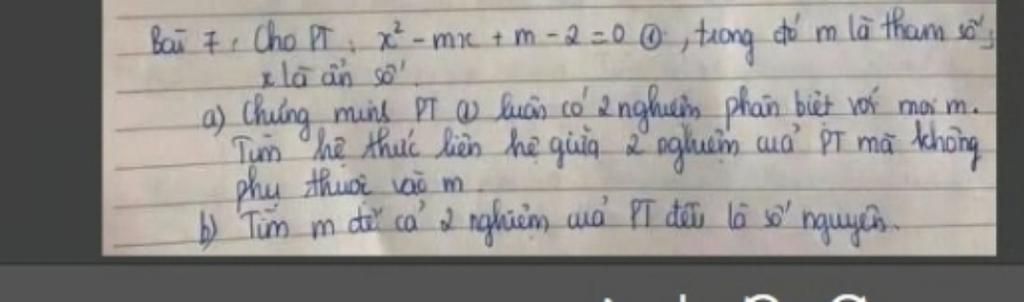 Bài 7: Cho PT: x² - mx + m - 2 = 0 ①, trong đó m là tham số,
x là ẩn số
a) Chứng minh PT ① luôn có 2 nghiệm phân biệt với mọi m.
Tìm hệ thức liên hệ giữa 2 nghiệm của PT mà không
phụ thuộc vào m
b) Tìm m để cả 2 nghiệm của PT đều là số nguyên.